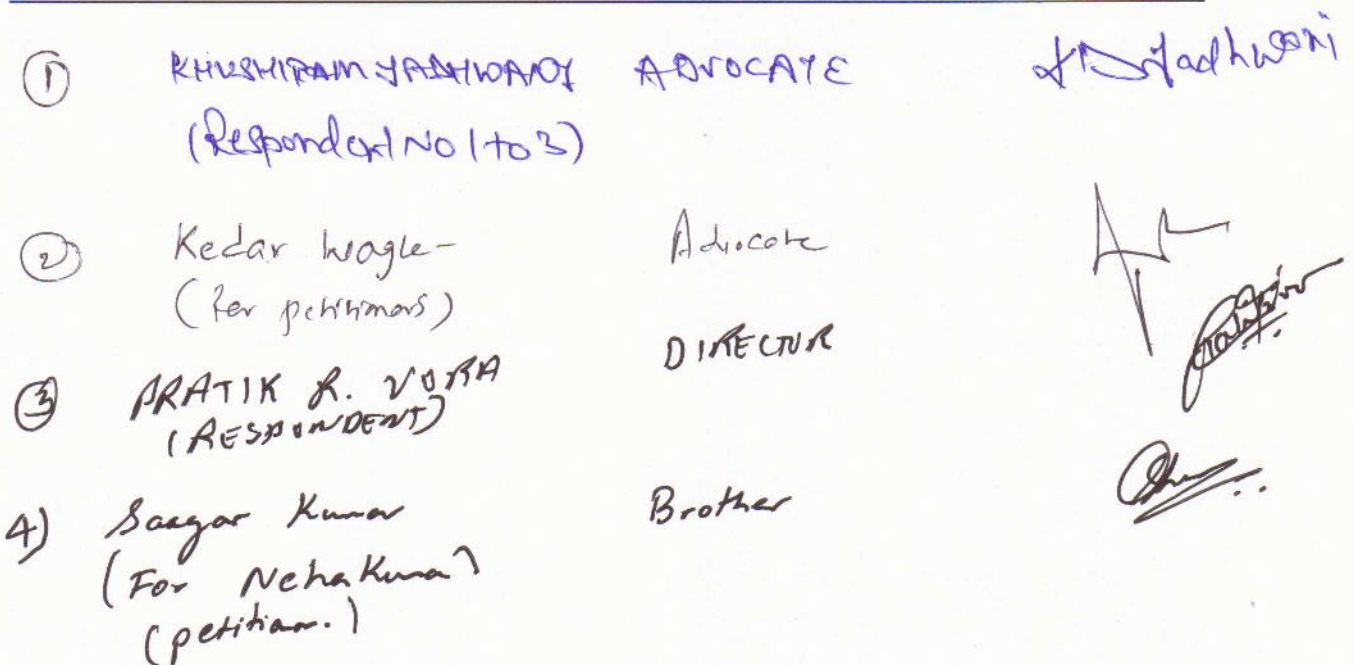 ① KHUSHIRAM JADHWANI ADVOCATE KD Jadhwani
(Respondent No 1 to 3)
② Kedar Wagle - Advocate
(For petitioners)
③ PRATIK R. VORA DIRECTOR
(RESPONDENT)
4) Saagar Kumar Brother
(For Neha Kumar)
(petition.)